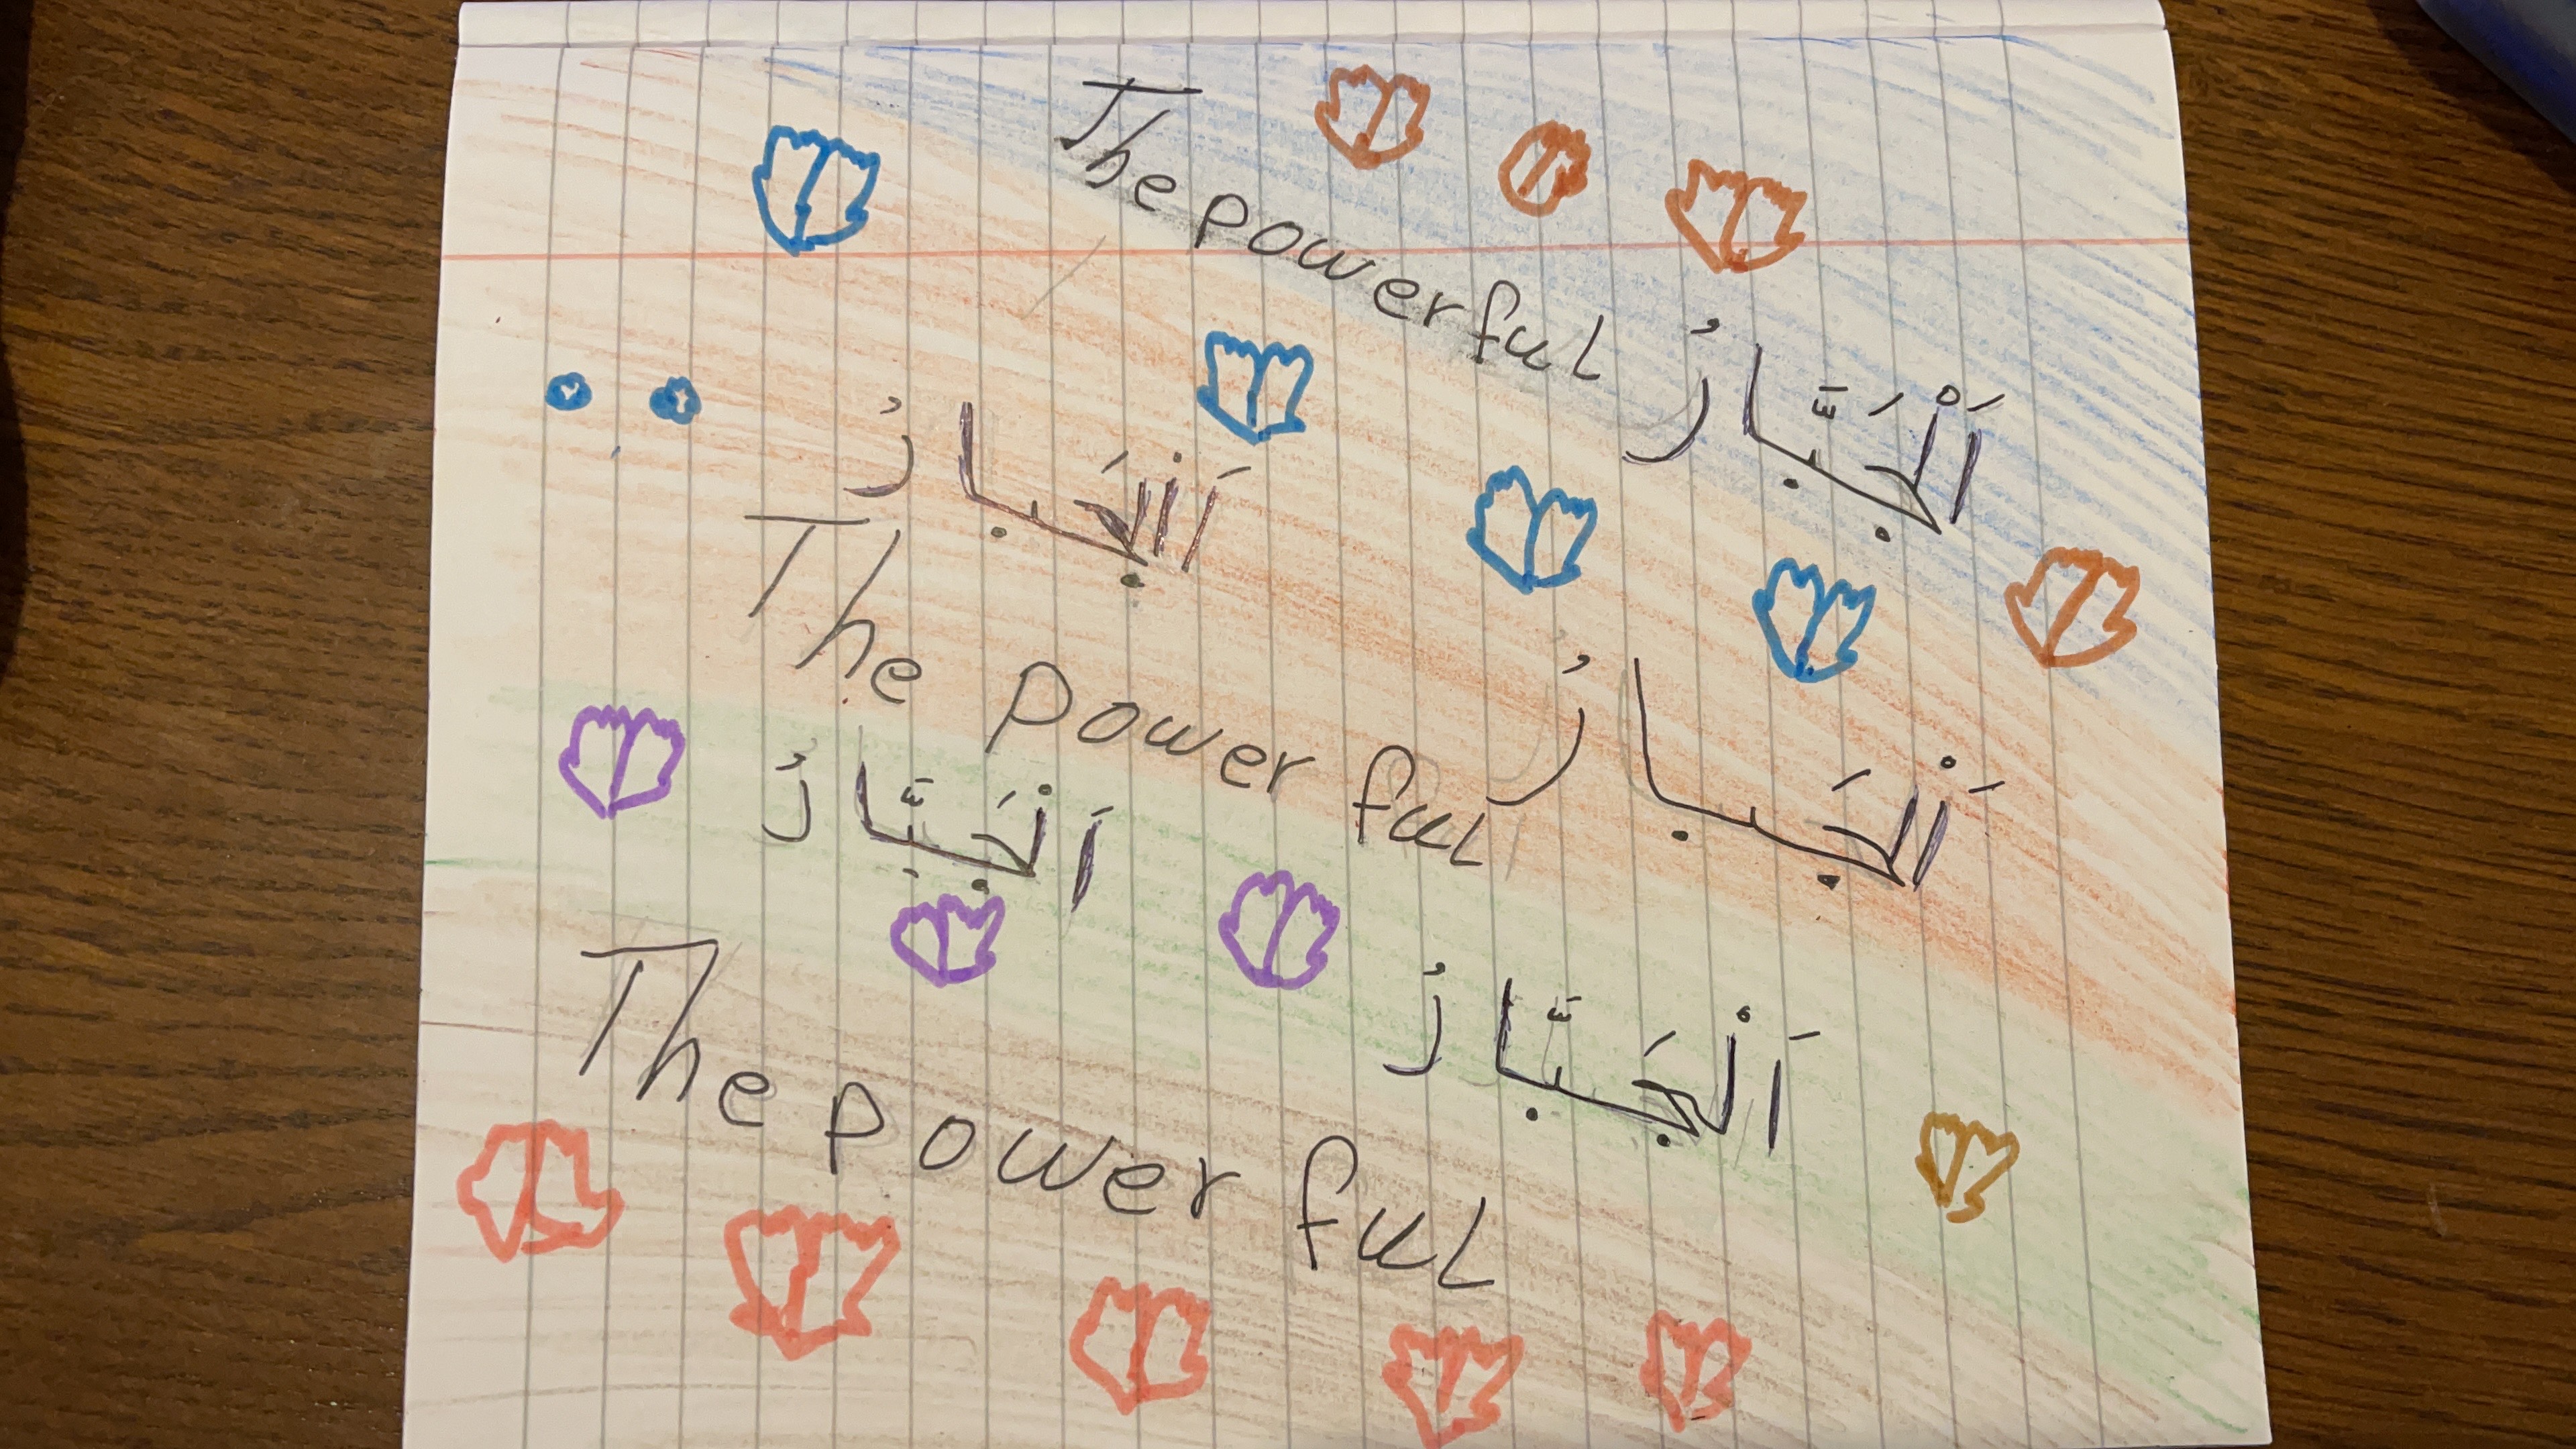 The powerful
اَلْجَبَّارُ
اَلْجَبارُ
The powerful
اَلْجَبارُ
اَلْجَبَّارُ
The powerful
اَلْجَبَّارُ